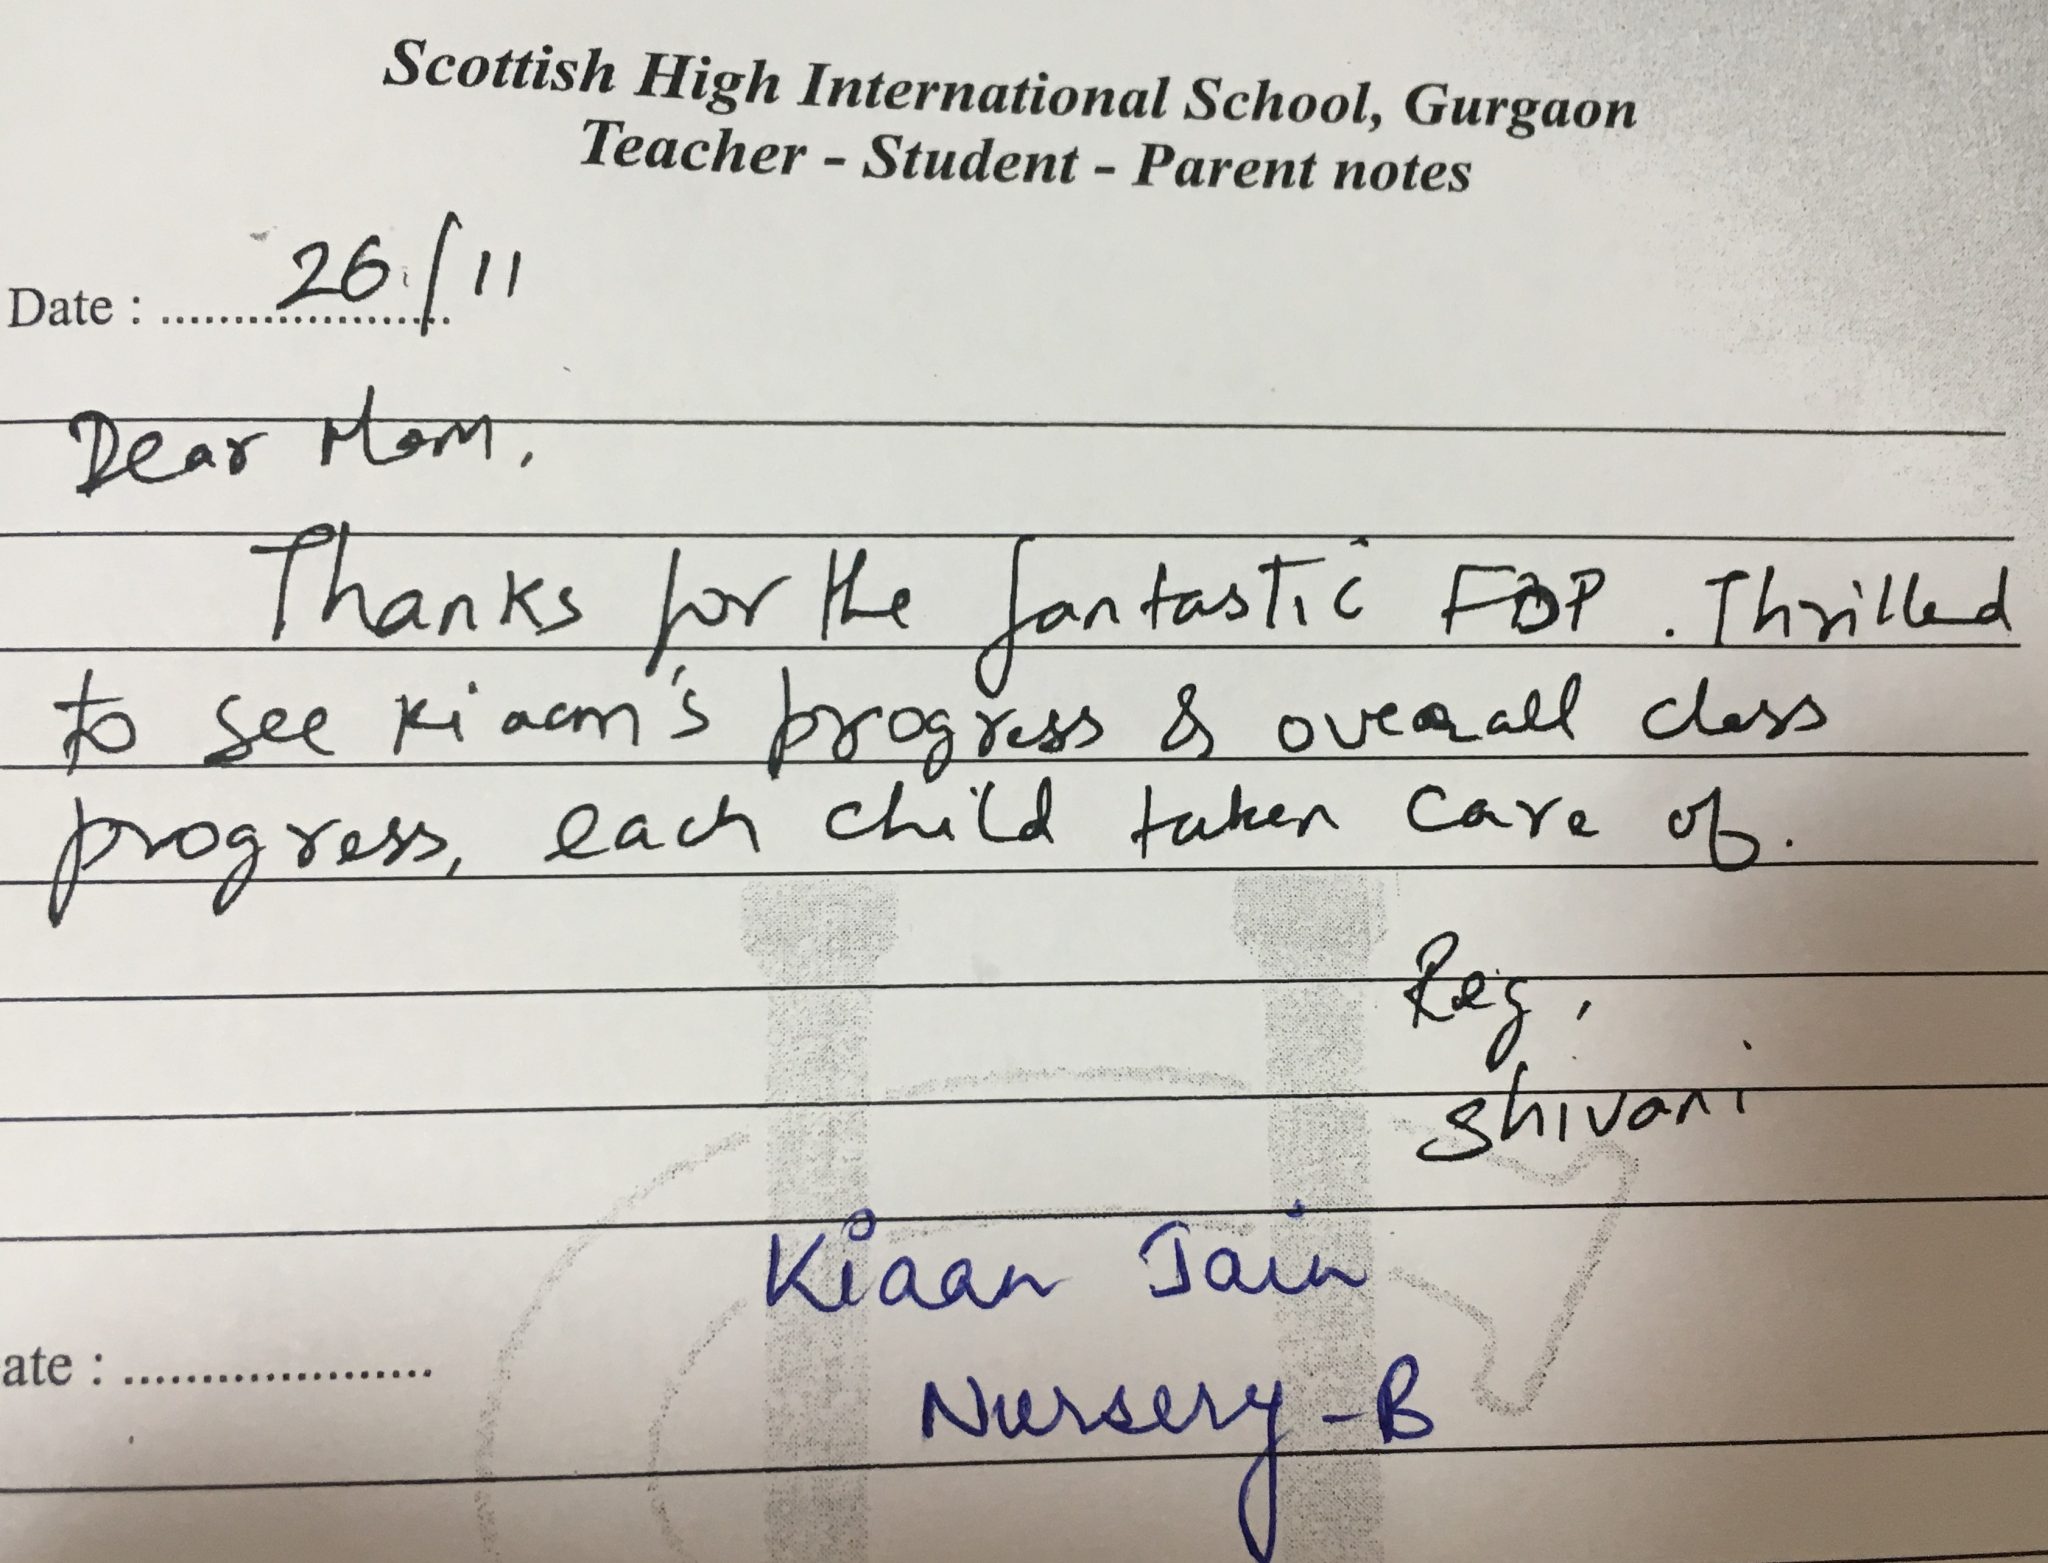 Scottish High International School, Gurgaon
Teacher - Student - Parent notes
Date : ..................... 26/11
Dear Mam,
Thanks for the fantastic FDP. Thrilled
to see Kiaan's progress & overall class
progress, each child taken care of.
Reg,
Shivani
Kiaan Jain
ate : .....................
Nursery-B